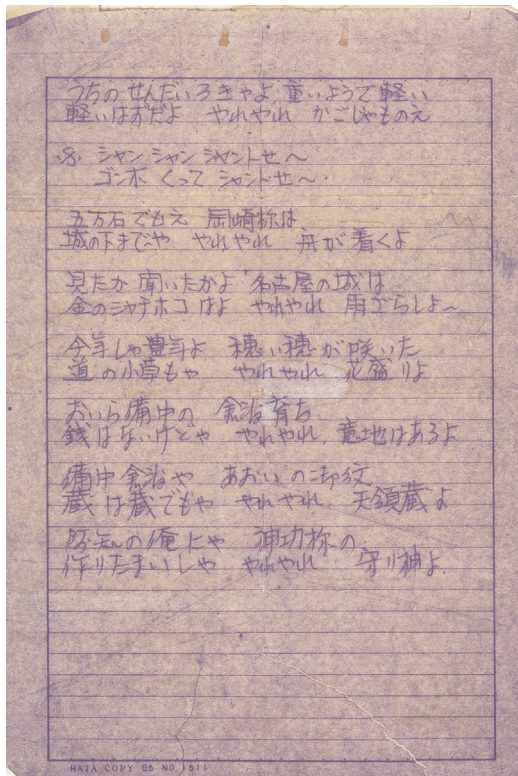 うちのせんだいろきゃよ 重いようで軽い
軽いはずだよ やれやれ かごじゃものえ
シャンシャン シャントセ〜
ゴンボ くって シャンドセ〜
五万石でもえ 岡崎様は
城の下までや やれやれ 舟が着くよ
見たか聞いたかよ 名古屋の城は
金のシャチホコはよ やれやれ 雨ざらしよ〜
今年しゃ豊年よ 穂に穂が咲いた
道の小草もや やれやれ 花盛りよ
おいら備中の 倉治育ち
銭はないけどや やれやれ 意地はあるよ
備中倉治や あおいの御紋
蔵は蔵でもや やれやれ 天領蔵よ
の俺にや 神功様の
作りたまいしや やれやれ 守り神よ
HATA COPY B5 NO.1511